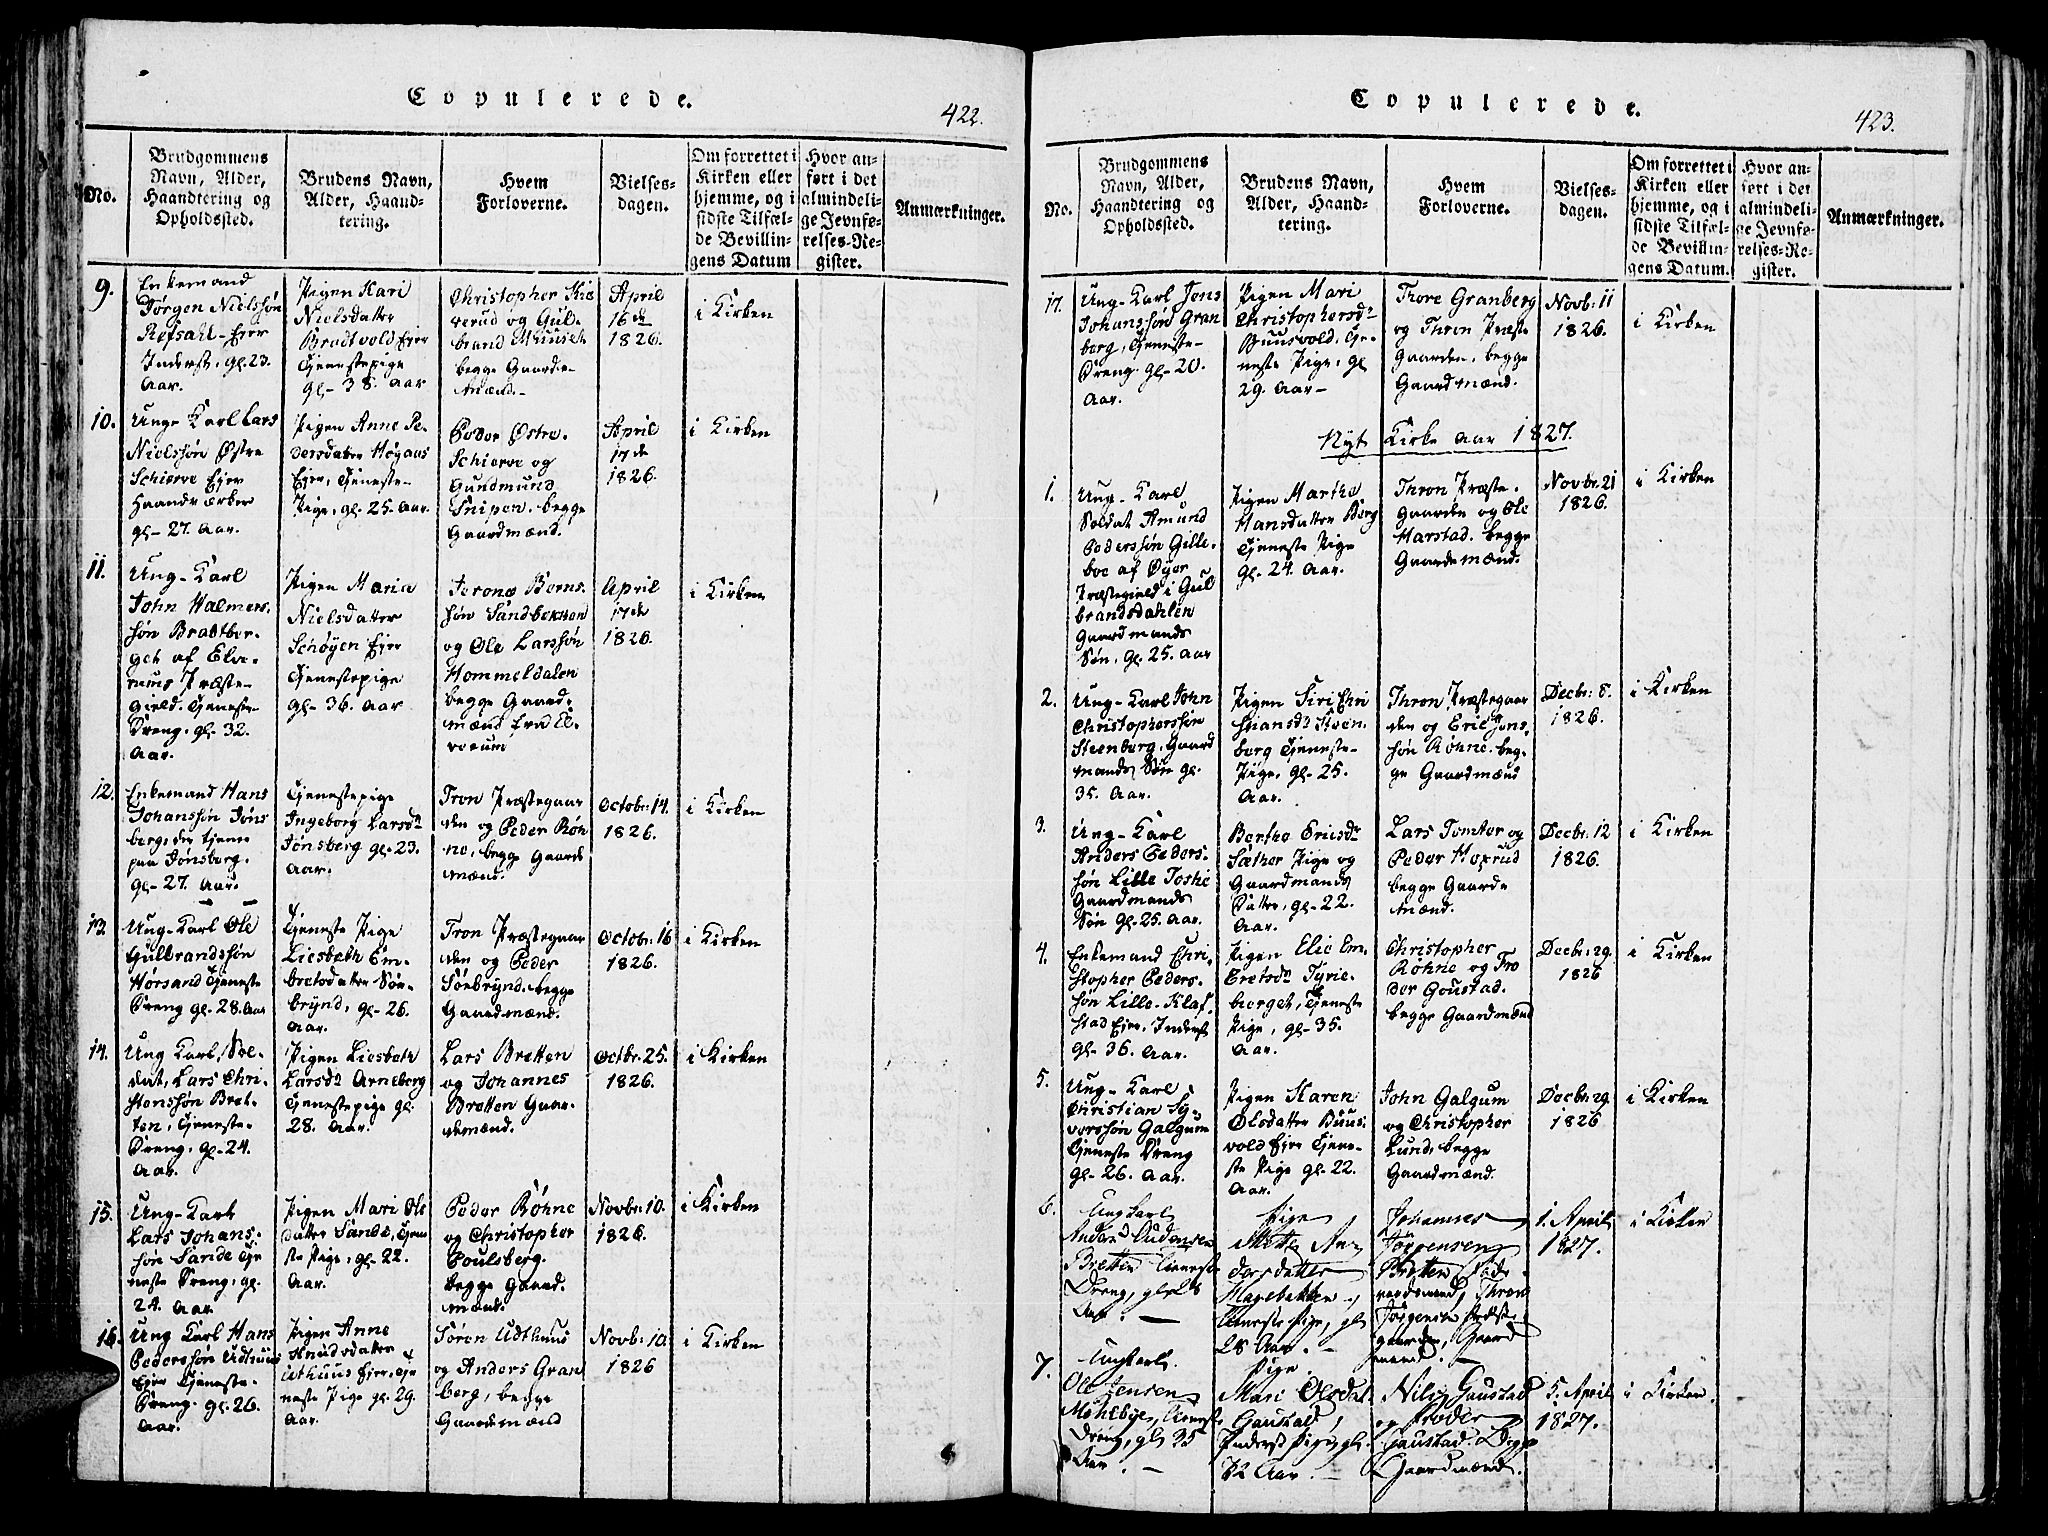 Copulerede.
422.
No.
Brudgommens
Navn, Alder,
Haandtering og
Opholdssted.
Brudens Navn,
Alder, Haand-
tering.
Hvem
Forloverne.
Vielses-
dagen.
Om forrettet i
Kirken eller
hjemme, og i
sidste Tilfæl-
de Bevillin-
gens Datum
Hvor an-
ført i det
almindeli-
ge Jevnfø-
relses-Re-
gister.
Anmærkninger.
9.
Enkemand
Jørgen Nielssøn
Refsahl- Ejer
Inderst, gl. 23.
Aar.
Pigen Kari
Nielsdatter
Bradtvold Ejer
Tjenestepige
gl- 38. Aar
Christopher Kie
rerud og Gul-
brand
begge Gaard-
Mænd.-
April
16de
1826.
i Kirken
10.
Ung- Karl Lars
Nielssøn Østre
Schierve Ejer
Haandværker
gl- 27. Aar.
Pigen Anne Pe-
dersdatter Høyaas
Ejer, Tjeneste-
Pige, gl. 25. Aar.
Peder Østre-
Schierve og
Gundmund
Snipen. begge
Gaardmænd.
April
17de
1826.
i Kirken
11.
Ung- Karl
John Halmers-
søn Bradtber-
get af Elve-
rums Præste-
gield. Tjeneste
Dreng, gl- 32.
Aar.
Pigen Maria
Nielsdatter
Schøyen Ejer
Tjenestepige
gl- 36. Aar
Berns-
søn Sandbekken
og Ole Larssøn
Hommeldalen
begge Gaard-
mænd fra El-
verum
April
17de
1826.
i Kirken
12.
Enkemand Hans
Johanssøn Jøns
berg, der tjener
paa Jønsberg.
gl- 27. Aar.
Tjenestepige
Ingeborg Larsdr
Jønsberg gl- 23.
Aar.
Tron Præstegaar
den og Peder Røh
ne, begge Gaard
mænd.
Octobr: 14.
1826.
i Kirken
13.
Ung- Karl Ole
Gulbrandssøn
Hørsand Tjeneste
Dreng gl- 28. Aar
Tjeneste Pige
Liesbeth Em-
bretsdatter Søe-
brynd, gl- 26.
Aar.
Tron Præstegaar
den og Peder
Søebrynd. begge
Gaardmænd.
Octobr: 16
1826.
i Kirken
14.
Ung Karl, Sol-
dat, Lars Chri-
stenssøn Bret-
ten, Tjeneste-
Dreng, gl- 24.
Aar.
Pigen Liesbeth
Larsdr Arneberg
Tjenestepige gl-
28. Aar.
Lars Bretten
og Johannes
Bretten Gaar-
demænd.
Octbr: 25.
1826.
i Kirken
15.
Ung- Karl
Lars Johans-
søn Sande Tje
neste Dreng, gl-
24. Aar
Pigen Mari Ols
datter Sande, Tjene
ste Pige, gl- 22.
Aar.
Peder Røhne
og Christopher
Poulsberg.
begge Gaard-
mænd.
Novbr: 10.
1826.
i Kirken
16.
Ung Karl Hans
Pederssøn Udthuus
Ejer Tjeneste-
Dreng. gl- 26.
Aar.
Pigen Anne
Knudsdatter
Udthuus Ejer, Tje
neste Pige gl- 29.
Aar.
Søren Udthuus
og Anders Gran
berg, begge
Gaardemænd
Novb: 10.
1826
i Kirken
Copulerede.
423.
No.
Brudgommens
Navn, Alder,
Haandtering og
Opholdssted.
Brudens Navn,
Alder, Haand-
tering.
Hvem
Forloverne.
Vielses-
dagen.
Om forrettet i
Kirken eller
hjemme, og i
sidste Tilfæl-
de Bevillin-
gens Datum.
Hvor an-
ført i det
almindeli-
ge Jevnfø-
relses-Re-
gister.
Anmærkninger.
17.
Ung- Karl Jens
Johanssøn Gran
berg, Tjeneste-
Dreng. gl- 20.
Aar.
Pigen Mari
Christophersdr
Buusvold, Tje-
neste Pige, gl
29. Aar-
Thore Granberg
og Thron Præste
Gaarden, begge
Gaardmænd.
Novb: 11
1826.
i Kirken
Nyt Kirke aar 1827.
1.
Ung- Karl
Soldat Amund
Pederssøn Gille-
boe af Øyer
Præstegield i Gul
brandsdahlen
Gaardmands
Søn, gl. 25. Aar
Pigen Marthe
Hansdatter Berg
Tjeneste Pige
gl- 24. Aar.
Thron Præste-
gaarden og Ole
Harstad. begge
Gaardemænd.
Novbr. 21
1826.
i Kirken
2.
Ung- Karl John
Christopherssøn
Steenberg, Gaard
mands Søn gl-
35. Aar.
Pigen Siri Chri
stiansdr Steen-
berg Tjeneste-
Pige, gl- 25.
Aar.
Thron Præstegaar
den og Eric Jons-
søn Røhne. beg-
ge Gaardmænd
Decbr: 8.
1826.
i Kirken
3.
Ung- Karl
Anders Peders-
søn Lille Toshie
Gaardmands
Søn gl- 25. Aar.
Berthe Ericsdr
Sæther Pige og
Gaardmands
Datter, gl- 22.
Aar.
Lars Tomter og
Peder Hoxrud
begge Gaarde
Mænd.
Decbr: 12
1826.
i Kirken
4.
Enkemand Chri-
stopher Peders-
søn Lille- Klaf-
stad Ejer, Inderst
gl- 36. Aar.
Pigen Elie Em-
bretsdr Tyrie-
berget, Tjeneste
Pige, gl- 35.
Aar.
Christopher
Røhne og Fro
der Goustad.
begge Gaardmænd
Decbr: 29.
1826
i Kirken
5.
Ung- Karl
Christian Sy-
verssøn Galgum
Tjeneste Dreng
gl- 26. Aar.
Pigen Karen
Olsdatter Buus-
vold Ejer Tjene-
ste Pige gl- 22.
Aar.
John Galgum
og Christopher
Lund, begge
Gaardmænd.
Decbr: 29
1826
i Kirken
6.
Ungkarl
Anders Audensen
Bretten tieneste
Dreng, gl 28
Aar. —
Pige
Mette An-
dersdatter
Hagebakken,
tieneste Pige, gl
28 Aar. —
Johannes
Jørgensen
Bretten
Thron
Jørgensen Præste-
gaarden, Gaard
mænd. —
1. April
1827.
i Kirken
7.
Ungkarl.
Ole Jensen
Mæhlbye, tieneste
Dreng, gl 35
Aar. —
Pige
Mari Olsdat.
Gaustad,
Inderst Pige, gl.
32 Aar. —
Nils Gaustad
og Froder
Gaustad. Begge
Gaardmænd.
5. April
1827.
i Kirken.